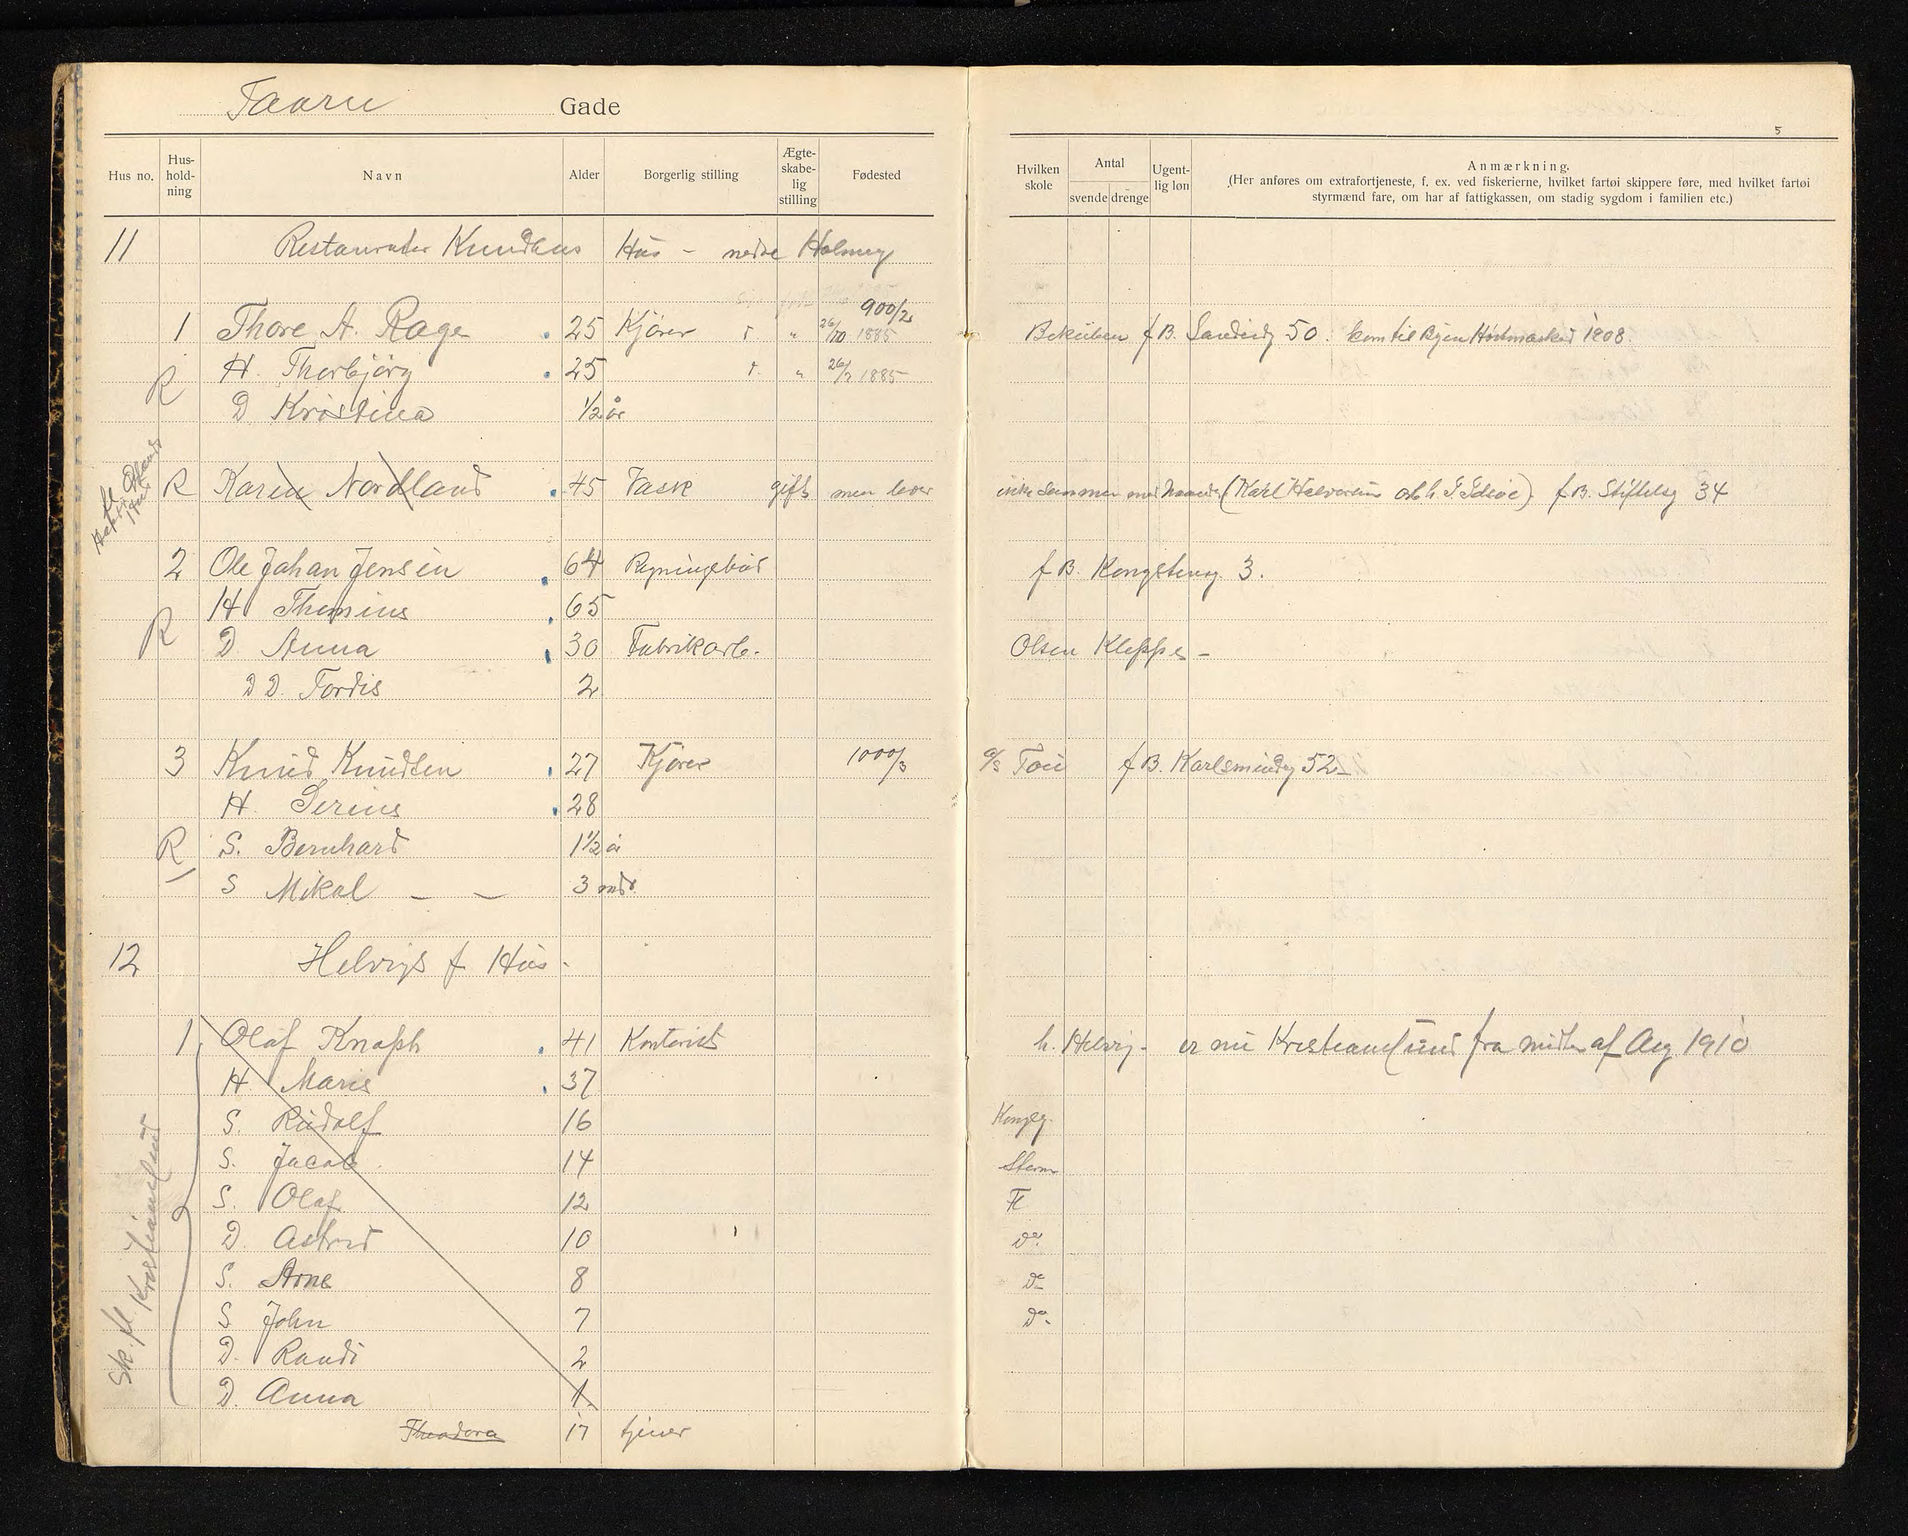 Taarn Gade
5
Hus no.
Hus-
hold-
ning
Navn
Alder
Borgerlig stilling
Ægte-
skabe-
lig
stilling
Fødested
Hvilken
skole
Antal
svende drenge
Ugent-
lig løn
Anmærkning.
(Her anføres om extrafortjeneste, f. ex. ved fiskerierne, hvilket fartøi skippere føre, med hvilket fartøi
styrmænd fare, om har af fattigkassen, om stadig sygdom i familien etc.)
11 Restauratør Knudsens Hus – nedre Holmeg
900/2
1 Thore A. Rage 25 Kjører " 26/10 1885 f B. Sandvig 50. kom til Byen Høstmarked 1908.
H. Thorbjörg 25 " 26/2 1885
R
D Kristina 1/2 år
R Karen Nordland 45 Vask gift men lever ikke sammen med Manden (Karl Halvorsen f B. Stiftelsg 34
2 Ole Johan Jensen 64 Regningsbud f B. Kongstensg 3.
H Thomine 65
R
D Anna 30 Fabrikarb. Olsen Kleppe –
D D. Tordis 2
3 Knud Knudsen 27 Kjører 1000/3 a/s Tou f B. Karlsmindeg 52 –
H. Serine 28
R S. Bernhard 1 1/2 år
S Mikal – – 3 mdr.
12 Helvigs f Hus –
1 Olaf Knaph 41 Kontorist h. Helvig – er nu Kristiansund fra midten af Aug 1910
H. Marie 37
S. Rudolf 16 Kongsg.
S. Jacob 14 Storm
S. Olaf 12 Fl
D. Astrid 10 Do.
S. Arne 8 Do
S John 7 Do.
D. Randi 2
D. Anna 1
Sk. fl. Kristiansund
Theodora 17 tjener